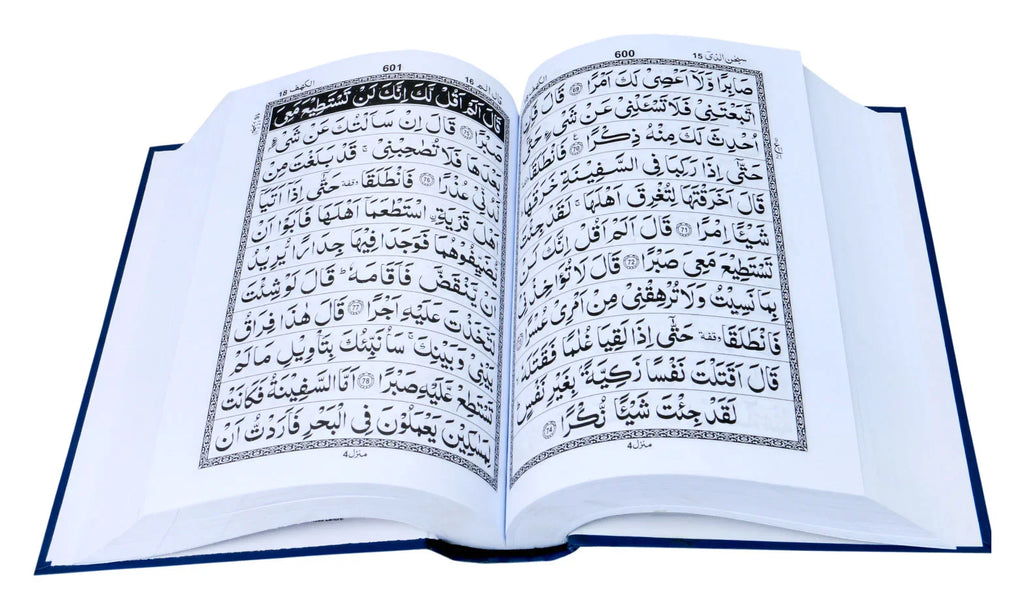 600
سبحن الذیٓ 15
صَابِرًا وَّلَآ اَعْصِیْ لَكَ اَمْرًا ﴿69﴾ قَالَ فَاِنِ
اتَّبَعْتَنِیْ فَلَا تَسْـَٔلْنِیْ عَنْ شَیْءٍ حَتّٰۤی
اُحْدِثَ لَكَ مِنْهُ ذِكْرًا ﴿70﴾ فَانْطَلَقَا
حَتّٰۤی اِذَا رَكِبَا فِی السَّفِیْنَةِ خَرَقَهَا
قَالَ اَخَرَقْتَهَا لِتُغْرِقَ اَهْلَهَا ۚ لَقَدْ جِئْتَ
شَیْـًٔا اِمْرًا ﴿71﴾ قَالَ اَلَمْ اَقُلْ اِنَّكَ لَنْ
تَسْتَطِیْعَ مَعِیَ صَبْرًا ﴿72﴾ قَالَ لَا تُؤَاخِذْنِیْ
بِمَا نَسِیْتُ وَلَا تُرْهِقْنِیْ مِنْ اَمْرِیْ عُسْرًا
فَانْطَلَقَا وقفة حَتّٰۤی اِذَا لَقِیَا غُلٰمًا فَقَتَلَهٗ
قَالَ اَقَتَلْتَ نَفْسًا زَكِیَّةًۢ بِغَیْرِ نَفْسٍ
لَقَدْ جِئْتَ شَیْـًٔا نُّكْرًا ﴿74﴾
منزل 4
601
قال الم 16
الكهف 18
قَالَ اَلَمْ اَقُلْ لَّكَ اِنَّكَ لَنْ تَسْتَطِیْعَ مَعِیَ
صَبْرًا ﴿75﴾ قَالَ اِنْ سَاَلْتُكَ عَنْ شَیْءٍۭ
بَعْدَهَا فَلَا تُصٰحِبْنِیْ ۚ قَدْ بَلَغْتَ مِنْ
لَّدُنِّیْ عُذْرًا ﴿76﴾ فَانْطَلَقَا وقفة حَتّٰۤی اِذَاۤ اَتَیَاۤ
اَهْلَ قَرْیَةِ ِ۟اسْتَطْعَمَاۤ اَهْلَهَا فَاَبَوْا اَنْ
یُّضَیِّفُوْهُمَا فَوَجَدَا فِیْهَا جِدَارًا یُّرِیْدُ
اَنْ یَّنْقَضَّ فَاَقَامَهٗ ؕ قَالَ لَوْ شِئْتَ
لَتَّخَذْتَ عَلَیْهِ اَجْرًا ﴿77﴾ قَالَ هٰذَا فِرَاقُ
بَیْنِیْ وَبَیْنِكَ ۚ سَاُنَبِّئُكَ بِتَاْوِیْلِ مَا لَمْ
تَسْتَطِعْ عَّلَیْهِ صَبْرًا ﴿78﴾ اَمَّا السَّفِیْنَةُ فَكَانَتْ
لِمَسٰكِیْنَ یَعْمَلُوْنَ فِی الْبَحْرِ فَاَرَدْتُّ اَنْ
منزل 4